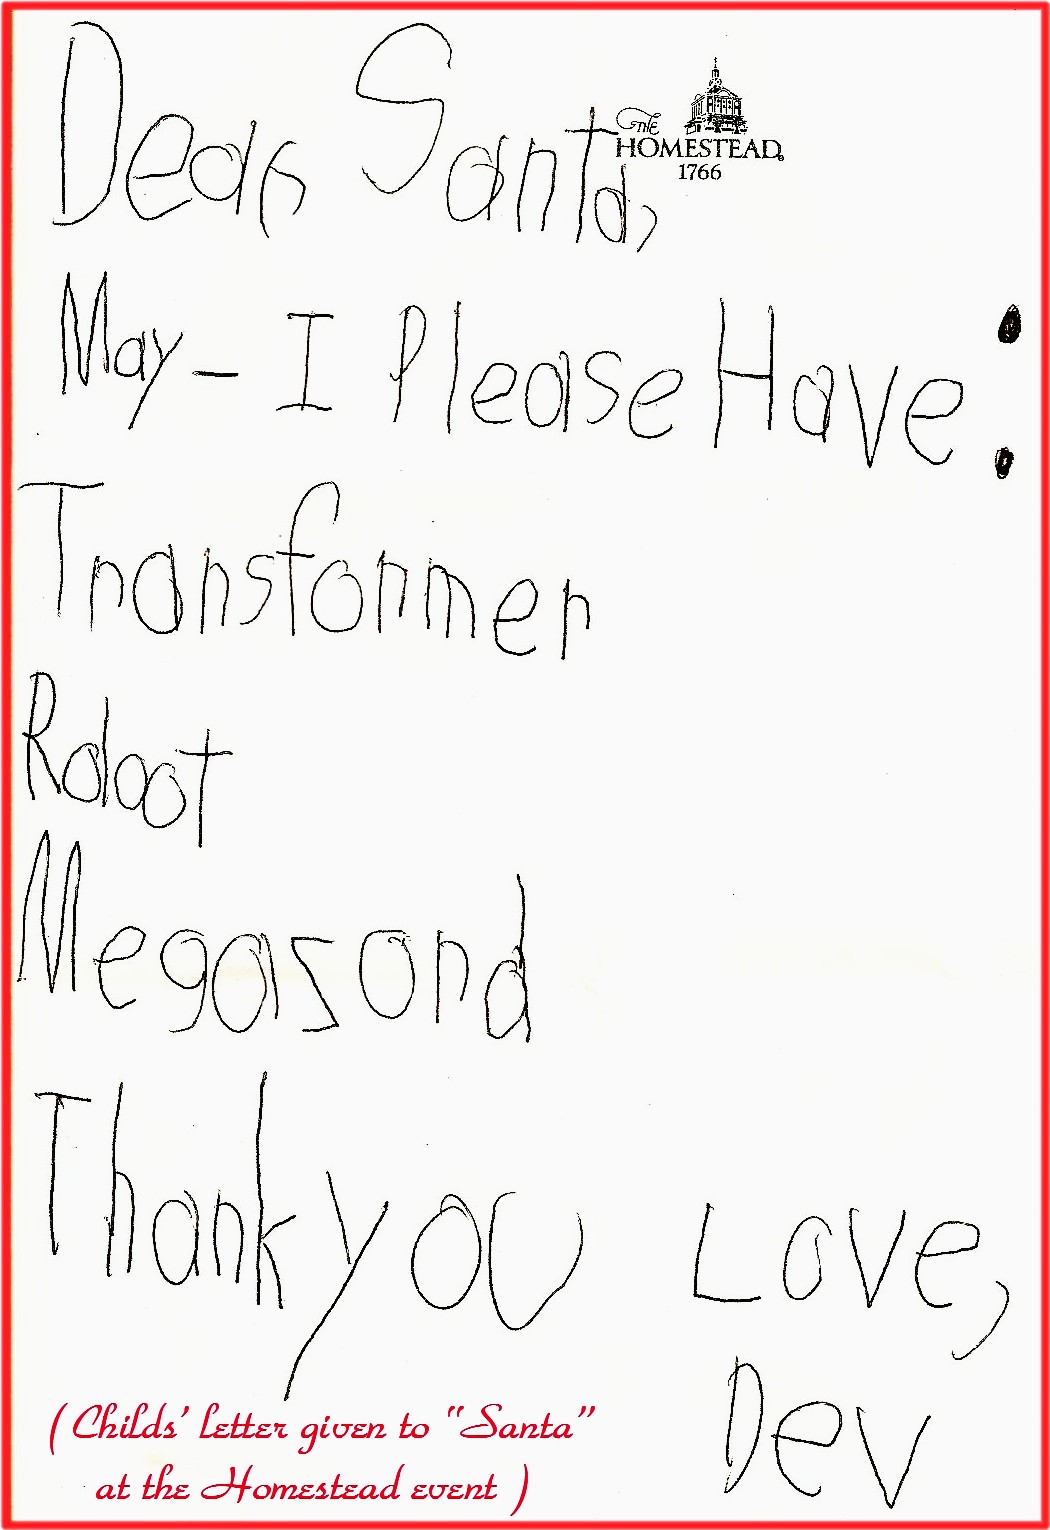 Dear Santa,
The
HOMESTEAD
1766
May - I Please Have:
Transformer
Roboot
Megazord
Thank you Love,
Dev
(Childs' letter given to "Santa"
at the Homestead event)